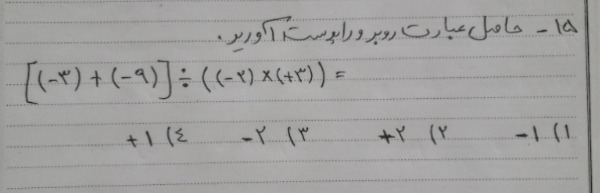 ۱۵- حاصل عبارت روبرو را بدست آورید.
[(-۳) + (-۹)] ÷ ((-۲) × (+۳)) =
۱) -۱ ۲) +۲ ۳) -۲ ٤) +۱